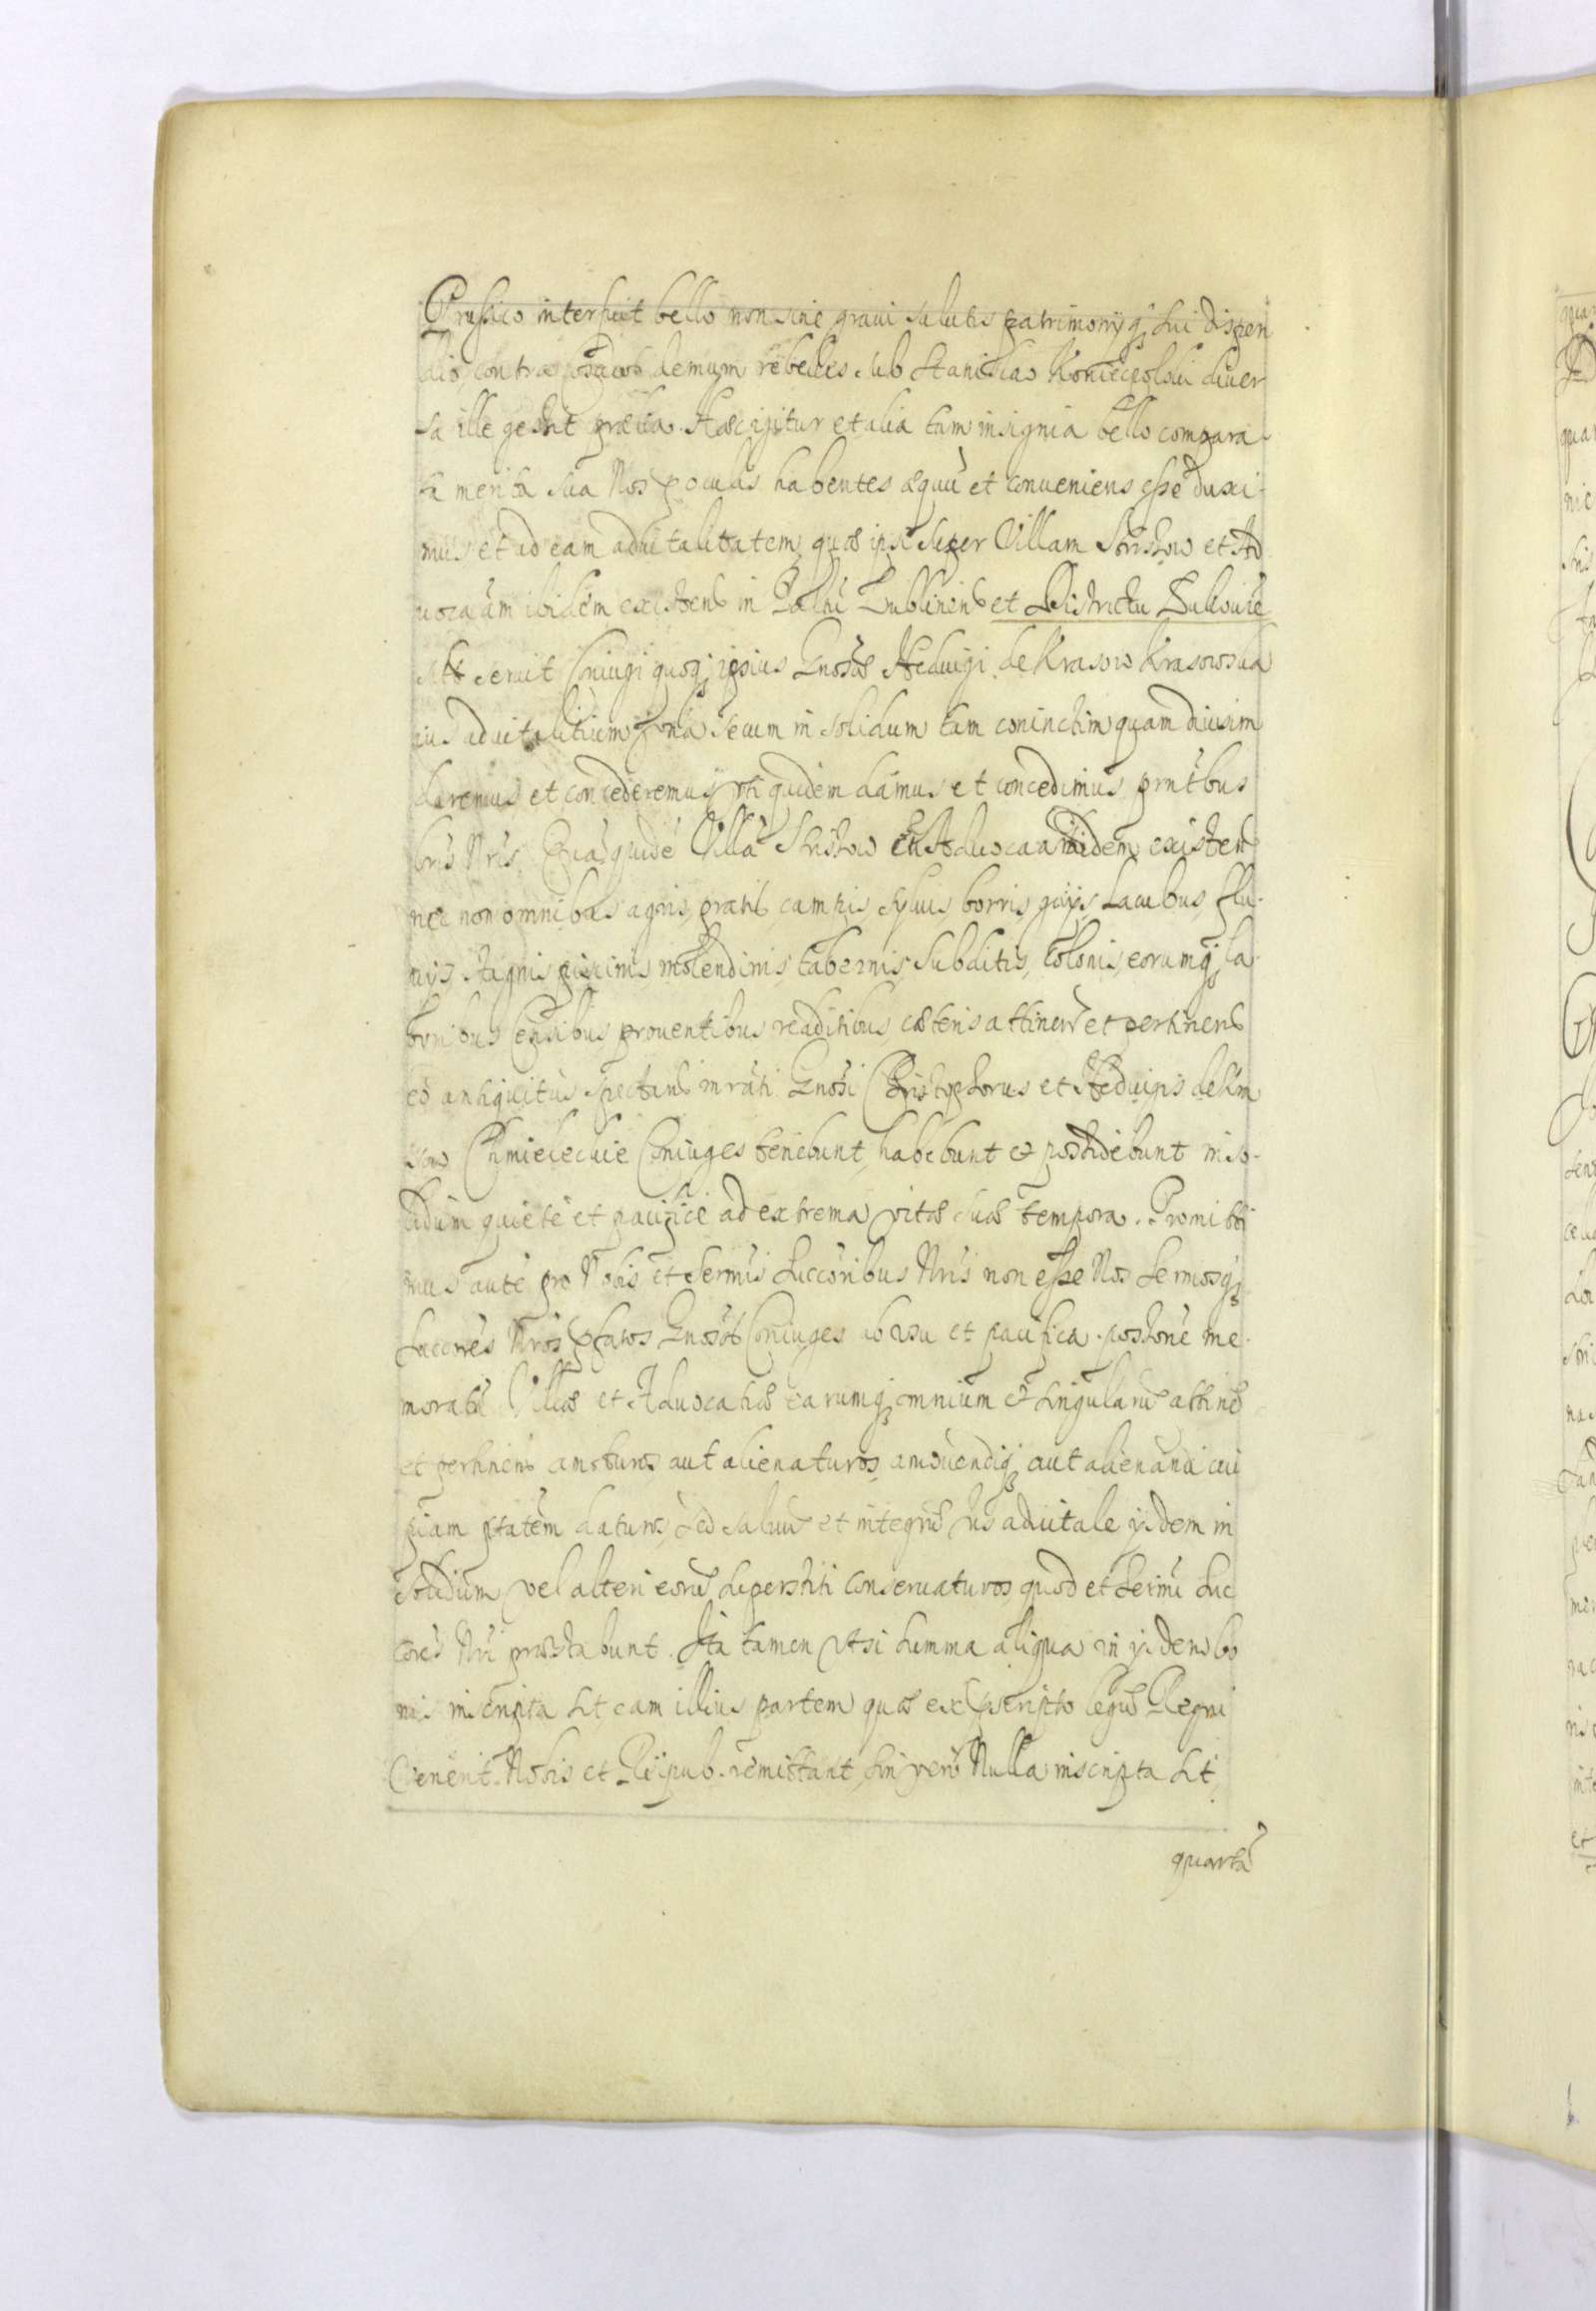 Prussico interfuit bello non sine graui salutis patrimonyq; sui dispen
dio, contra Cosacos demum rebelles sub Stanislao Koniecpolski diuer
sa ille gessit prælia. Hæc igitur et alia tam insignia bello compara-
ta merita sua Nos p oculis habentes æquũ et conueniens esse duxi-
mus et ad eam aduitalitatem, quæ ipsi super Villam et Ad
uocatiam ibidem existen in Palatũ Lublinen et Districtu Lukouie
seruit Coniugi quoq; ipsius Gnosæ Heduigi de Krasow Krasowska
ius aduitalitium vna secum in solidum tam coniunctim quam diuisim
daremus et concederemus, vti quidem damus et concedimus, pruntbus
lris Nris. Quã quidẽ Villã et Aduocatiã ibidem existen
nec non omnibus agris, pratis, campis, syluis, borris, gaijs, Lacubus, flu-
uijs, stagnis, piscinis, molendinis, tabernis, Subditis, Colonis, eorumq; la-
boribus Censibus, prouentibus, redditibus, cæteris attinen et pertinen
eo antiquitus spectan mrati Gnosi Christophorus et Heduigis de
Chmielecuie Coniuges tenebunt, habebunt et possidebunt in so-
lidum quiete et pacifice ad extrema vitæ suæ tempora. Promitti
mus autẽ pro Nobis et Sermis Succoribus Nris non esse Nos Sermosq;
Succores Nros pfatos Gnosos Coniuges ab vsu et pacifica possione me-
moratæ Villæ et Aduocatiæ earumq; omnium et singularũ attinen
et pertinen amoturos aut alienaturos, amouendiq; aut alienandi cui
piam ptatem daturos, sed saluũ et integrũ Ius aduitale ijsdem in
solidum vel alteri eorũ superstiti conseruaturos, quod et Sermi Suc
cores Nri præstabunt. Ita tamen vt si summa aliqua in ijsdem bo
nis inscripta sit eam illius partem quæ ex pscripto legũ Regni
venerit Nobis et Reipub. remittant, sin vero Nulla inscripta sit,
quartã